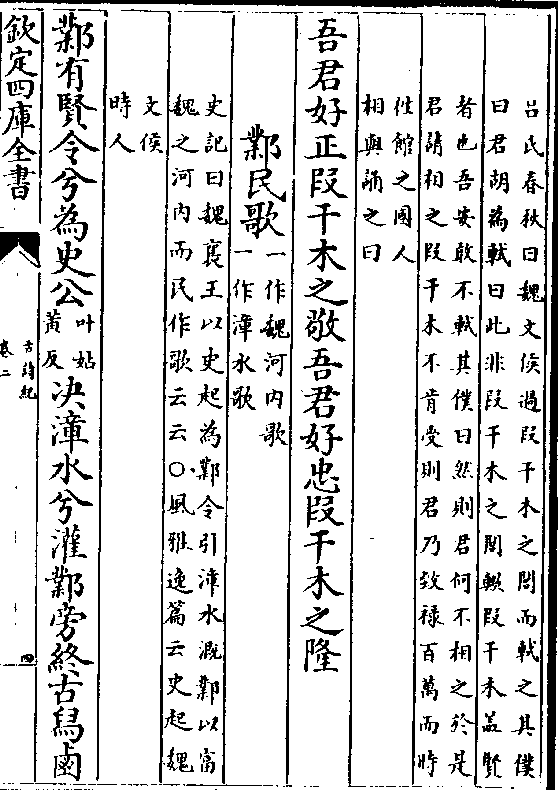 呂氏春秋曰魏文侯過段干木之閭而軾之其僕
曰君胡為軾曰此非段干木之閭歟段干木蓋賢
者也吾安敢不軾其僕曰然則君何不相之於是
君請相之段干木不肯受則君乃致祿百萬而時
往館之國人
相與誦之曰
吾君好正段干木之敬吾君好忠段干木之隆
鄴民歌
一作魏河内歌
一作漳水歌
史記曰魏襄王以史起為鄴令引漳水溉鄴以富
魏之河内而民作歌云云○風雅逸篇云史起魏
文侯
時人
鄴有賢令兮為史公
叶姑
黄反
決漳水兮灌鄴旁終古舄鹵
欽定四庫全書
古詩紀
卷二
四